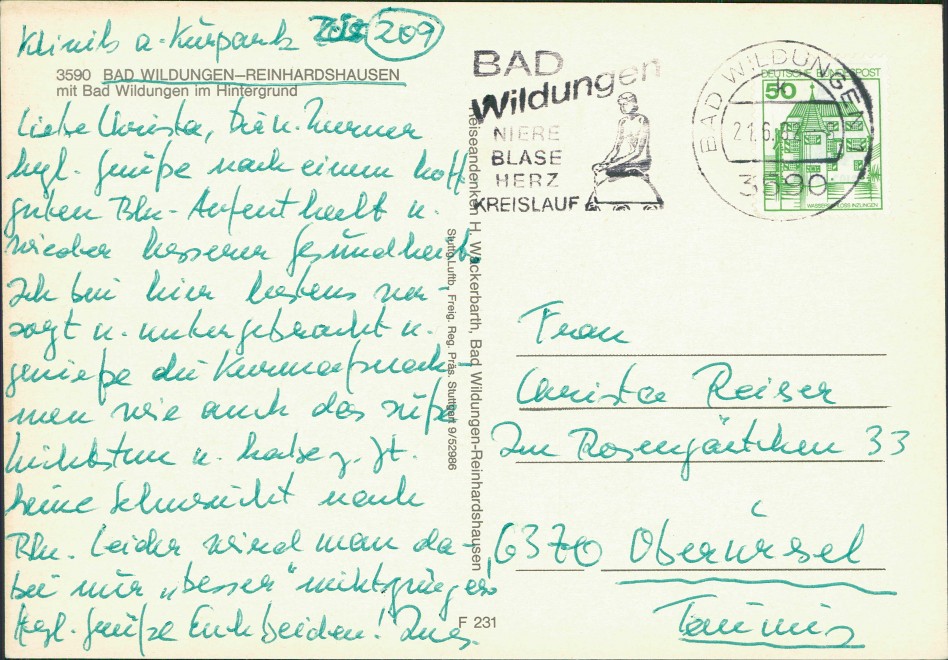 Klinik a. Kurpark 209
3590 BAD WILDUNGEN–REINHARDSHAUSEN
mit Bad Wildungen im Hintergrund
Liebe Christa,
hgl. Grüße nach einem hoff.
guten Bln-Aufenthalt u.
wieder besserer Gesundheit.
Ich bin hier bestens ver-
sorgt u. untergebracht u.
genieße die Kurmaßnah-
men wie auch das süße
Nichtstun u. habe z. Zt.
keine Sehnsucht nach
Bln. Leider wird man da-
bei nur „besser" nicht jünger!
Hgl. Grüße Euch beiden! Ines.
Reiseandenken H. Wackerbarth, Bad Wildungen-Reinhardshausen
Stuttg. Luftb., Freig. Reg. Präs. Stuttgart 9/52986
F 231
BAD
Wildungen
NIERE
BLASE
HERZ
KREISLAUF
BAD WILDUNGEN
21.6.
3590
DEUTSCHE BUNDESPOST
50
WASSERSCHLOSS INZLINGEN
Frau
Christa Reiser
Im Rosengärtchen 33
6370 Oberursel
Taunus